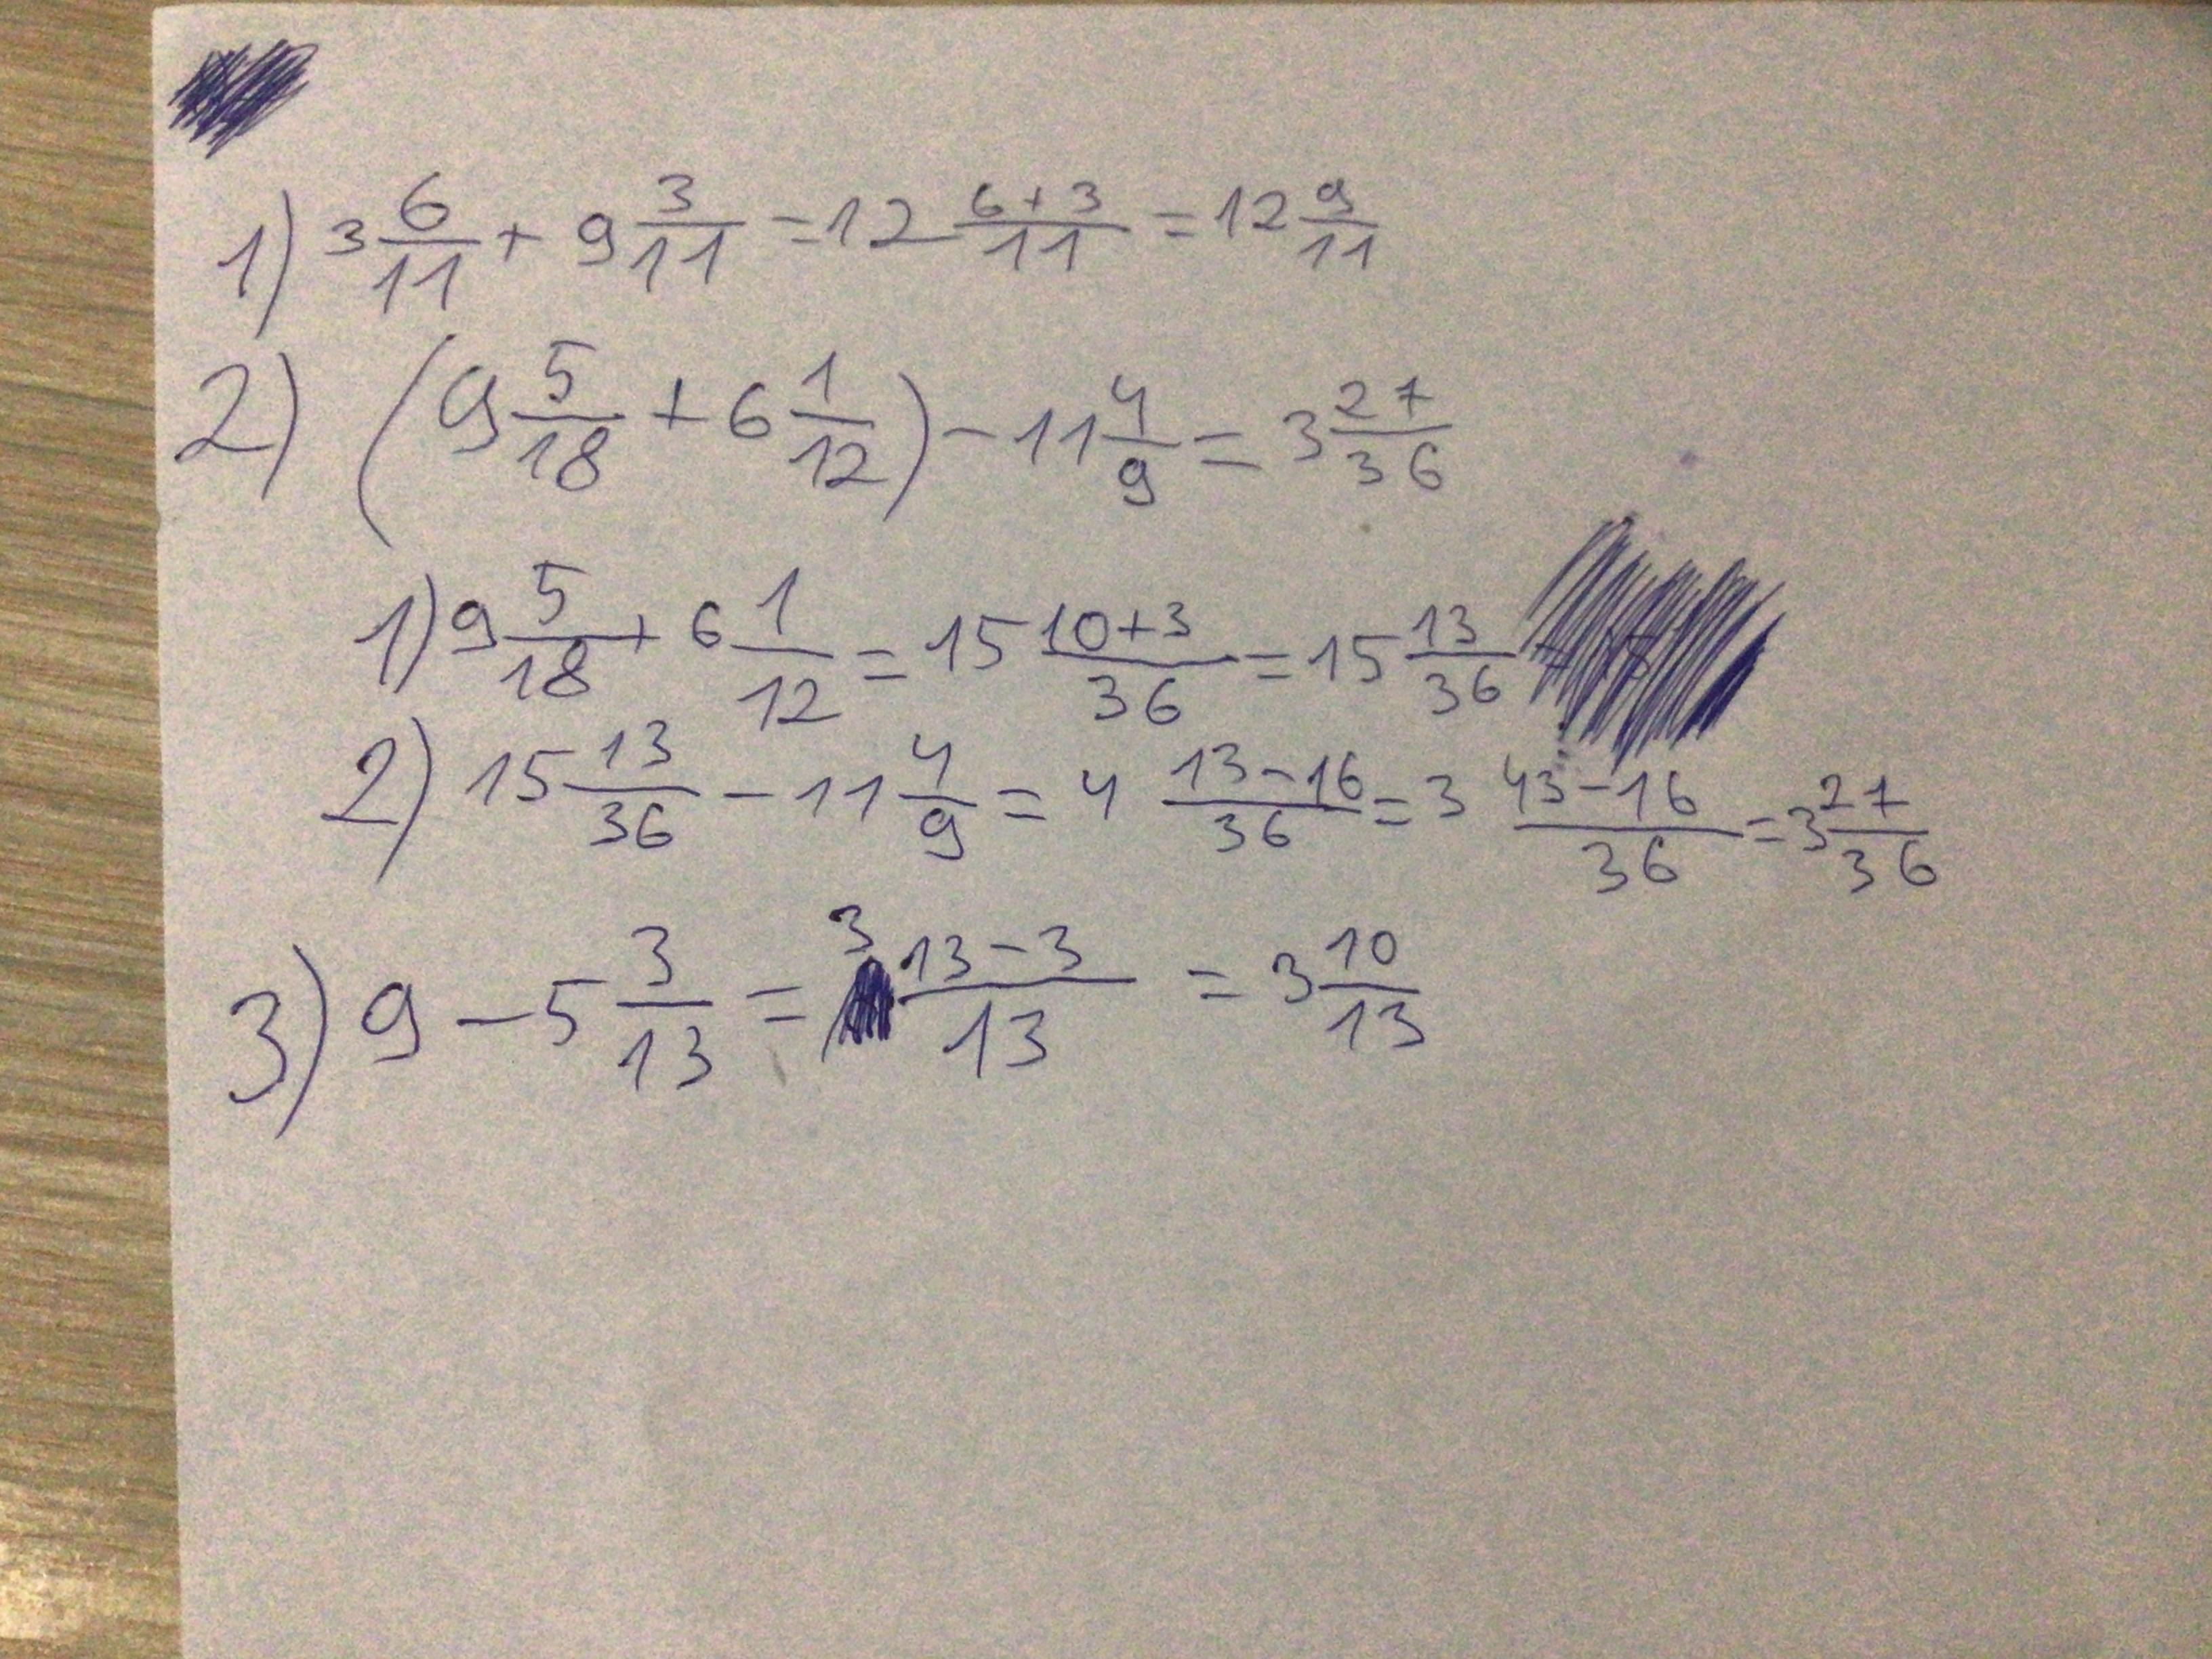 1) 3 6/11 + 9 3/11 = 12 6+3/11 = 12 9/11
2) (9 5/18 + 6 1/12) - 11 4/9 = 3 27/36
1) 9 5/18 + 6 1/12 = 15 10+3/36 = 15 13/36
2) 15 13/36 - 11 4/9 = 4 13-16/36 = 3 43-16/36 = 3 27/36
3) 9 - 5 3/13 = 3 13-3/13 = 3 10/13